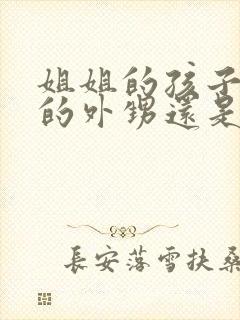 姐姐的孩子
的外甥還是
長安落雪扶桑